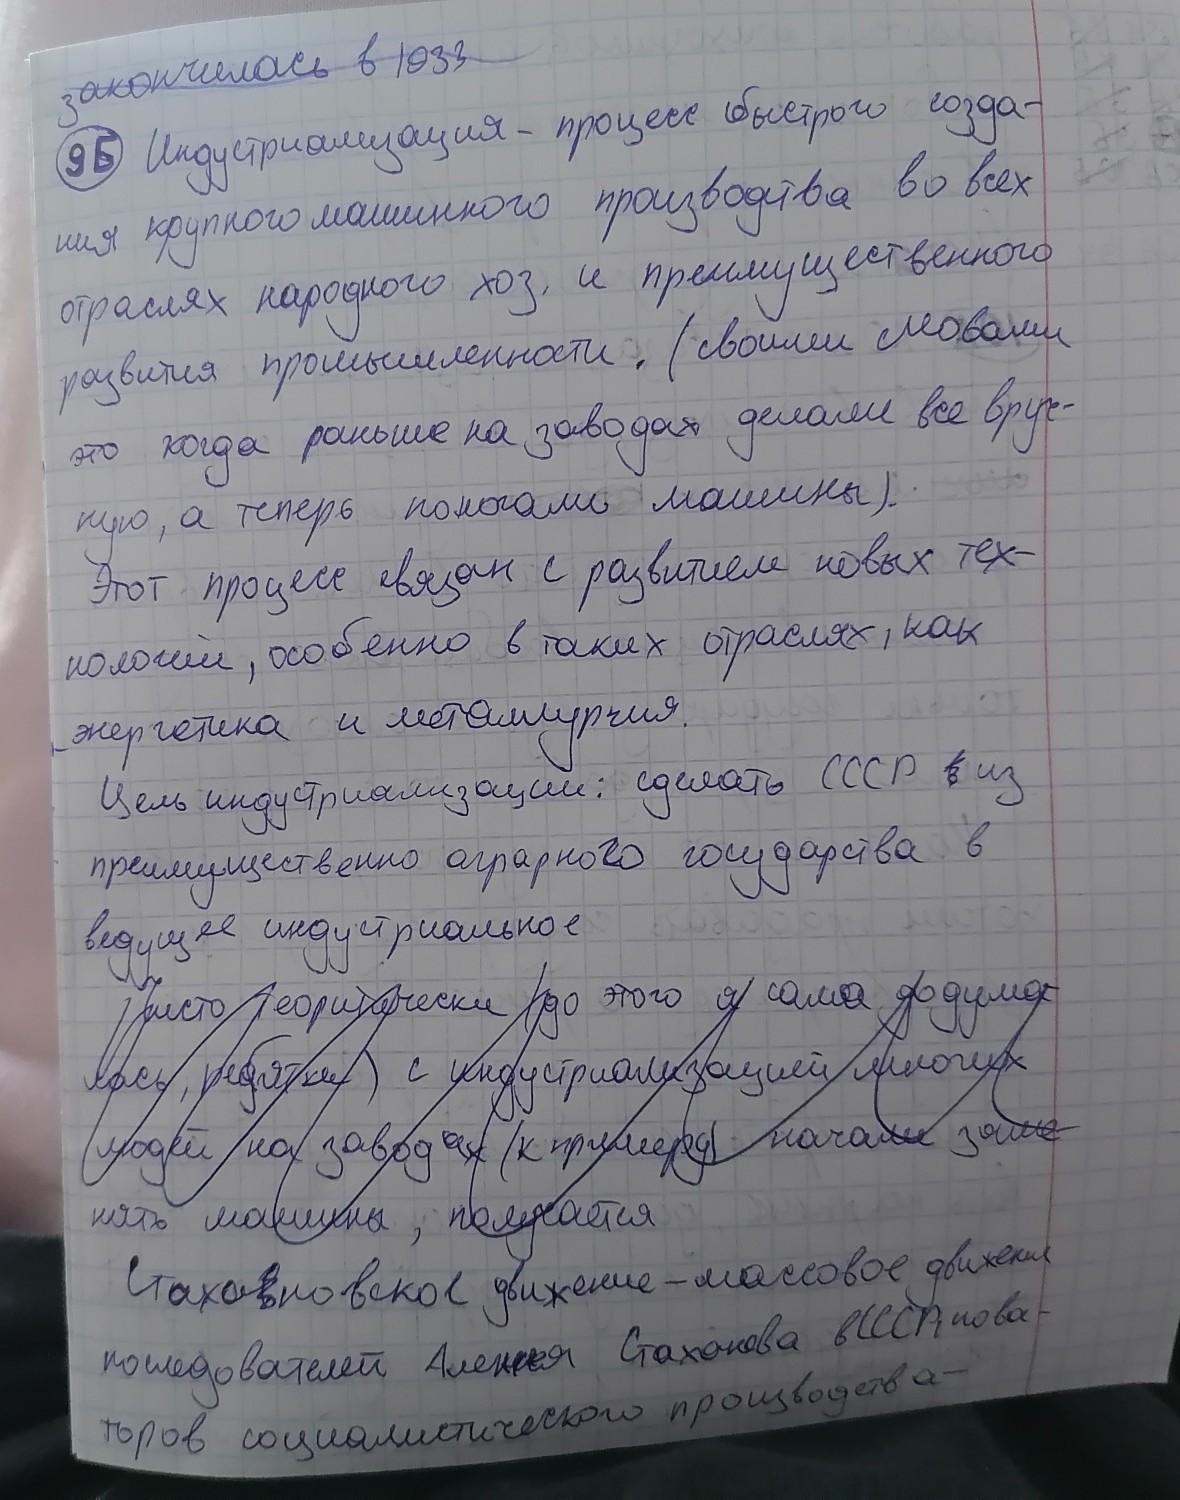 закончилась в 1933
9Б Индустриализация - процесс быстрого созда-
ния крупного машинного производства во всех
отраслях народного хоз. и преимущественного
развития промышленности. (своими словами
это когда раньше на заводах делали все вруч-
ную, а теперь помогали машины).
Этот процесс связан с развитием новых тех-
нологий, особенно в таких отраслях, как
энергетика и металлургия.
Цель индустриализации: сделать СССР из
преимущественно аграрного государства в
ведущее индустриальное
Чисто теоритически (до этого я сама додума-
лась, ребятки) с индустриализацией многих
людей на заводах (к примеру) начали заме-
нять машины, получается
Стахановское движение - массовое движение
последователей Алексея Стаханова в СССР, нова-
торов социалистического производства -